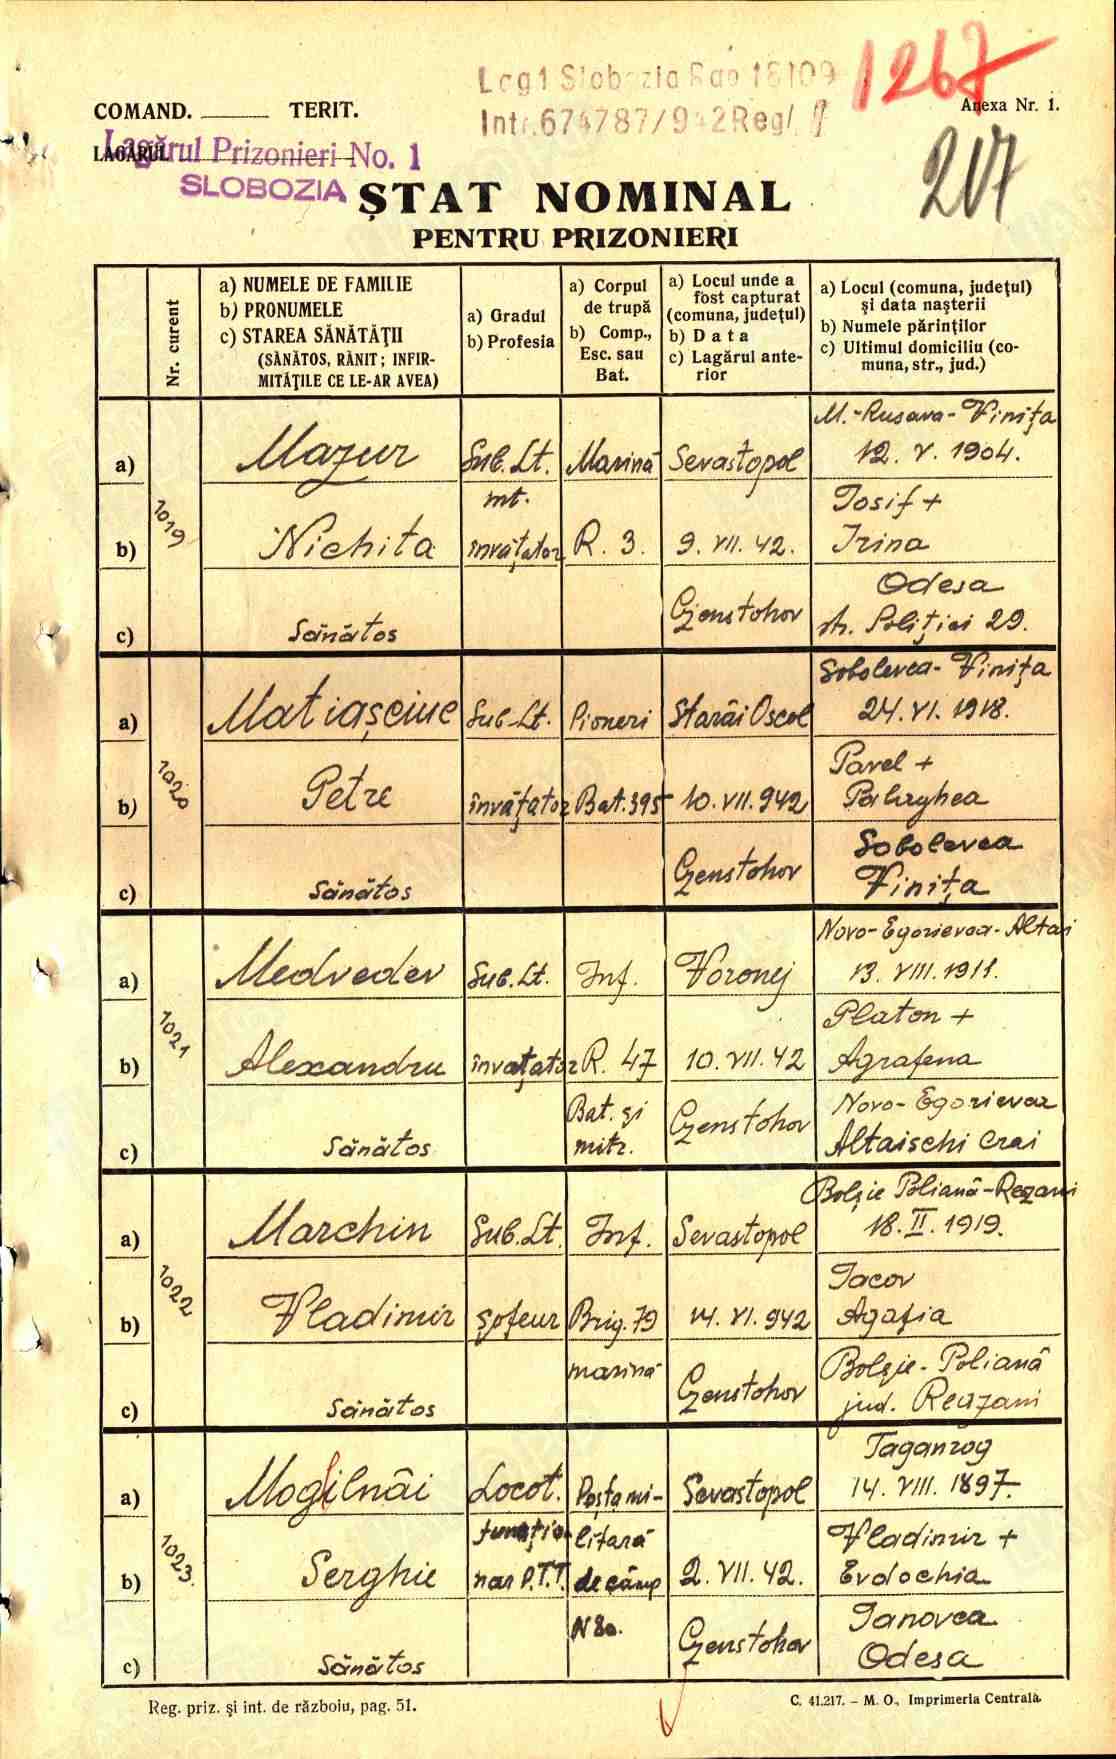 Lag 1 Slobozia Rao 18109
Intr. 674787/942 Reg/
1267
COMAND. TERIT.
Anexa Nr. 1.
LAGĂRUL
Lagărul Prizonieri No. 1
SLOBOZIA
217
ŞTAT NOMINAL
PENTRU PRIZONIERI
Nr. curent
a) NUMELE DE FAMILIE
b) PRONUMELE
c) STAREA SĂNĂTĂŢII
(SĂNĂTOS, RĂNIT; INFIR-
MITĂŢILE CE LE-AR AVEA)
a) Gradul
b) Profesia
a) Corpul
de trupă
b) Comp.,
Esc. sau
Bat.
a) Locul unde a
fost capturat
(comuna, judeţul)
b) Data
c) Lagărul ante-
rior
a) Locul (comuna, judeţul)
şi data naşterii
b) Numele părinţilor
c) Ultimul domiciliu (co-
muna, str., jud.)
1019
a) Mazur
Sub. Lt.
mt.
Marină
Sevastopol
M.-Rusava-Viniţa
12. V. 1904.
b) Nichita
învăţator
R. 3.
9. VII. 42.
Iosif +
Irina
c) Sănătos
Czenstohov
Odesa
str. Poliţiei 29.
1020
a) Matiaşciuc
Sub-Lt.
Pioneri
Starâi Oscol
Sobolevca-Viniţa
24. VI. 1918.
b) Petre
învăţator
Bat. 395
10. VII. 942
Pavel +
Palaghea
c) Sănătos
Czenstohov
Sobolevca
Viniţa
1021
a) Medvedev
Sub. Lt.
Inf.
Voronej
Novo-Egorievca-Altai
13. VIII. 1911.
b) Alexandru
învaţator
R. 47
10. VII. 42
Platon +
Agrafena
c) Sănătos
Bat. şi
mitr.
Czenstohov
Novo-Egorievca
Altaischi Crai
1022
a) Marchin
Sub. Lt.
Inf.
Sevastopol
Bolşie Poliană-Rezani
18. II. 1919.
b) Vladimir
şofeur
Brig. 79
marină
14. VI. 942
Iacov
Agafia
c) Sănătos
Czenstohov
Bolşie-Poliană
jud. Reazani
1023.
a) Mogilnâi
Locot.
Poşta mi-
Sevastopol
Taganrog
14. VIII. 1897.
b) Serghie
funcţio-
nar P.T.T.
litară
de câmp
N 80.
2. VII. 42.
Vladimir +
Evdochia
c) Sănătos
Czenstohov
Ianovca
Odesa
Reg. priz. şi int. de războiu, pag. 51.
C. 41.217. – M. O., Imprimeria Centrală.